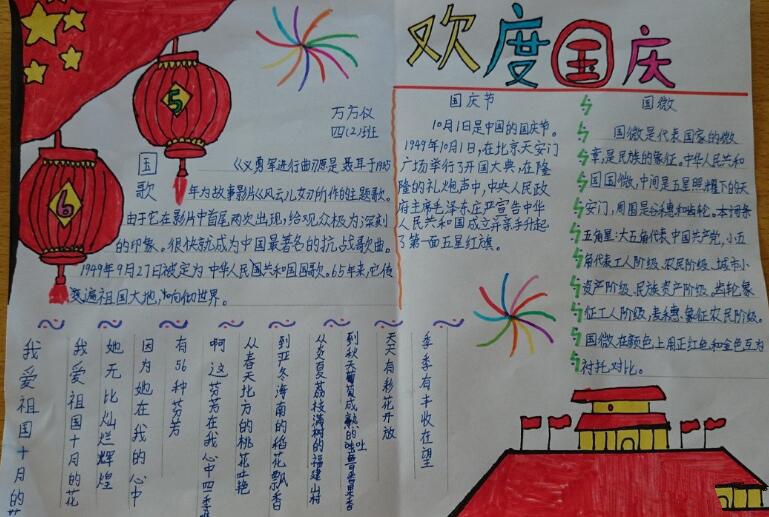 欢度国庆
5
6
万方仪
四(2)班
国歌
《义勇军进行曲》原是聂耳于1935
年为故事影片《风云儿女》所作的主题歌。
由于它在影片中首尾两次出现,给观众极为深刻
的印象。很快就成为中国最著名的抗战歌曲。
1949年9月27日被定为中华人民共和国国歌。65年来,它传
遍祖国大地,响彻世界。
国庆节
10月1日是中国的国庆节。
1949年10月1日,在北京天安门
广场举行了开国大典,在隆
隆的礼炮声中,中央人民政
府主席毛泽东庄严宣告中华
人民共和国成立并亲手升起
了第一面五星红旗。
国徽
国徽是代表国家的徽
章,是民族的象征。中华人民共和
国国徽,中间是五星照耀下的天
安门,周围是谷穗和齿轮。本词条
五角星:大五角代表中国共产党,小五
角代表工人阶级、农民阶级、城市小
资产阶级、民族资产阶级。齿轮象
征工人阶级,麦穗象征农民阶级。
国徽在颜色上用正红色和金色互为
衬托对比。
季季有丰收在望
天天有彩花开放
到秋天
从炎夏荔枝满树的福建山村
到严冬海南的稻花飘香
从春天北方的桃花吐艳
啊这芬芳在我心中四季
有56种芬芳
因为她在我的心中
她无比灿烂辉煌
我爱祖国十月的花
我爱祖国十月的花